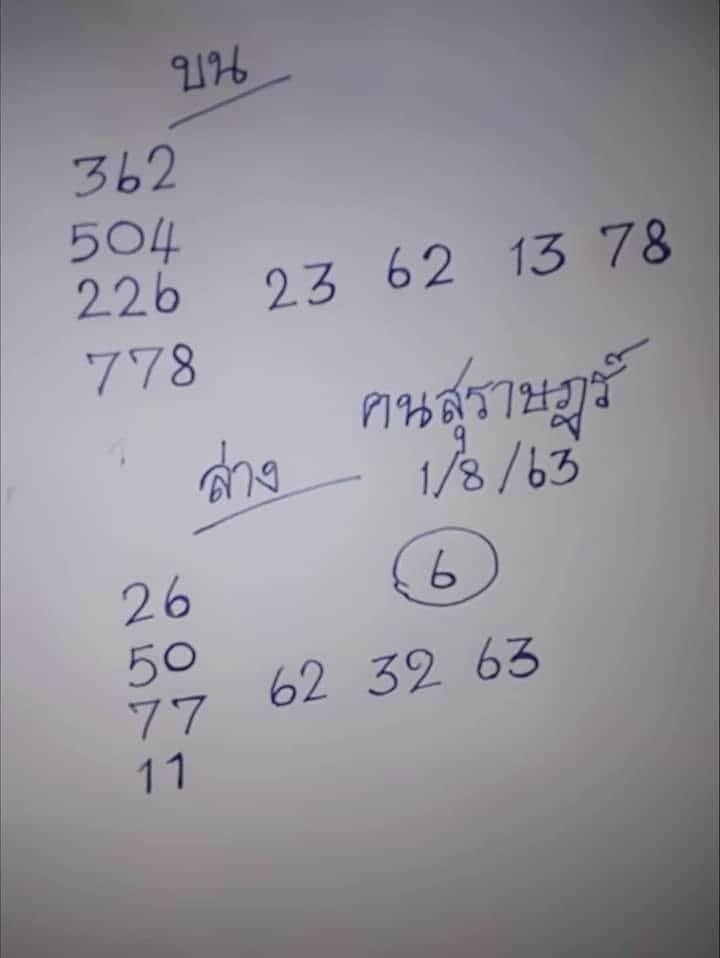 บน
362
504
226 23 62 13 78
778
คนสุราษฎร์
ล่าง 1/8/63
6
26
50
77 62 32 63
11